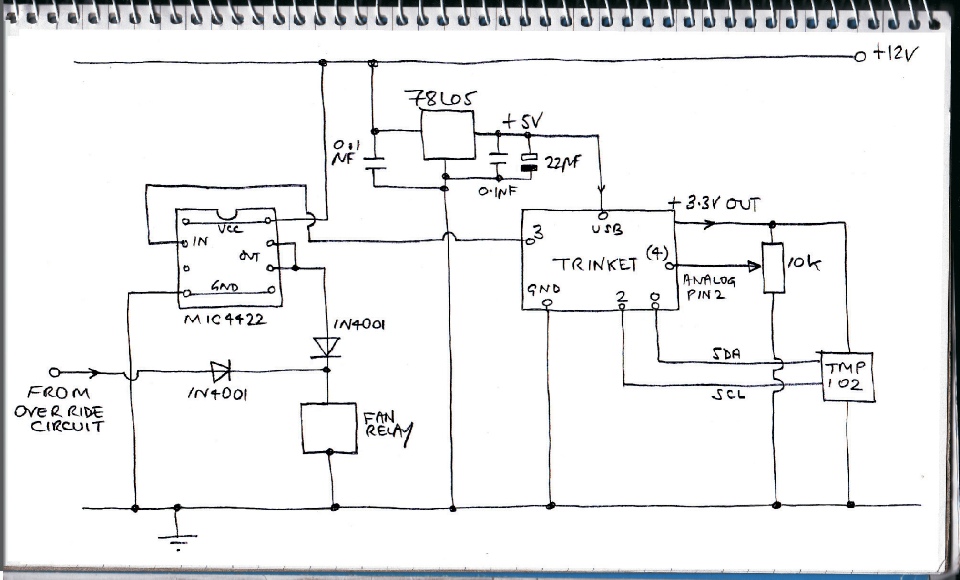 +12V
78L05
+5V
0.1
µF
22µF
0.1µF
+3.3V OUT
VCC
IN
OUT
GND
MIC4422
3
USB
TRINKET
(4)
GND
2
0
ANALOG
PIN2
10K
1N4001
1N4001
FROM
OVERRIDE
CIRCUIT
FAN
RELAY
SDA
SCL
TMP
102